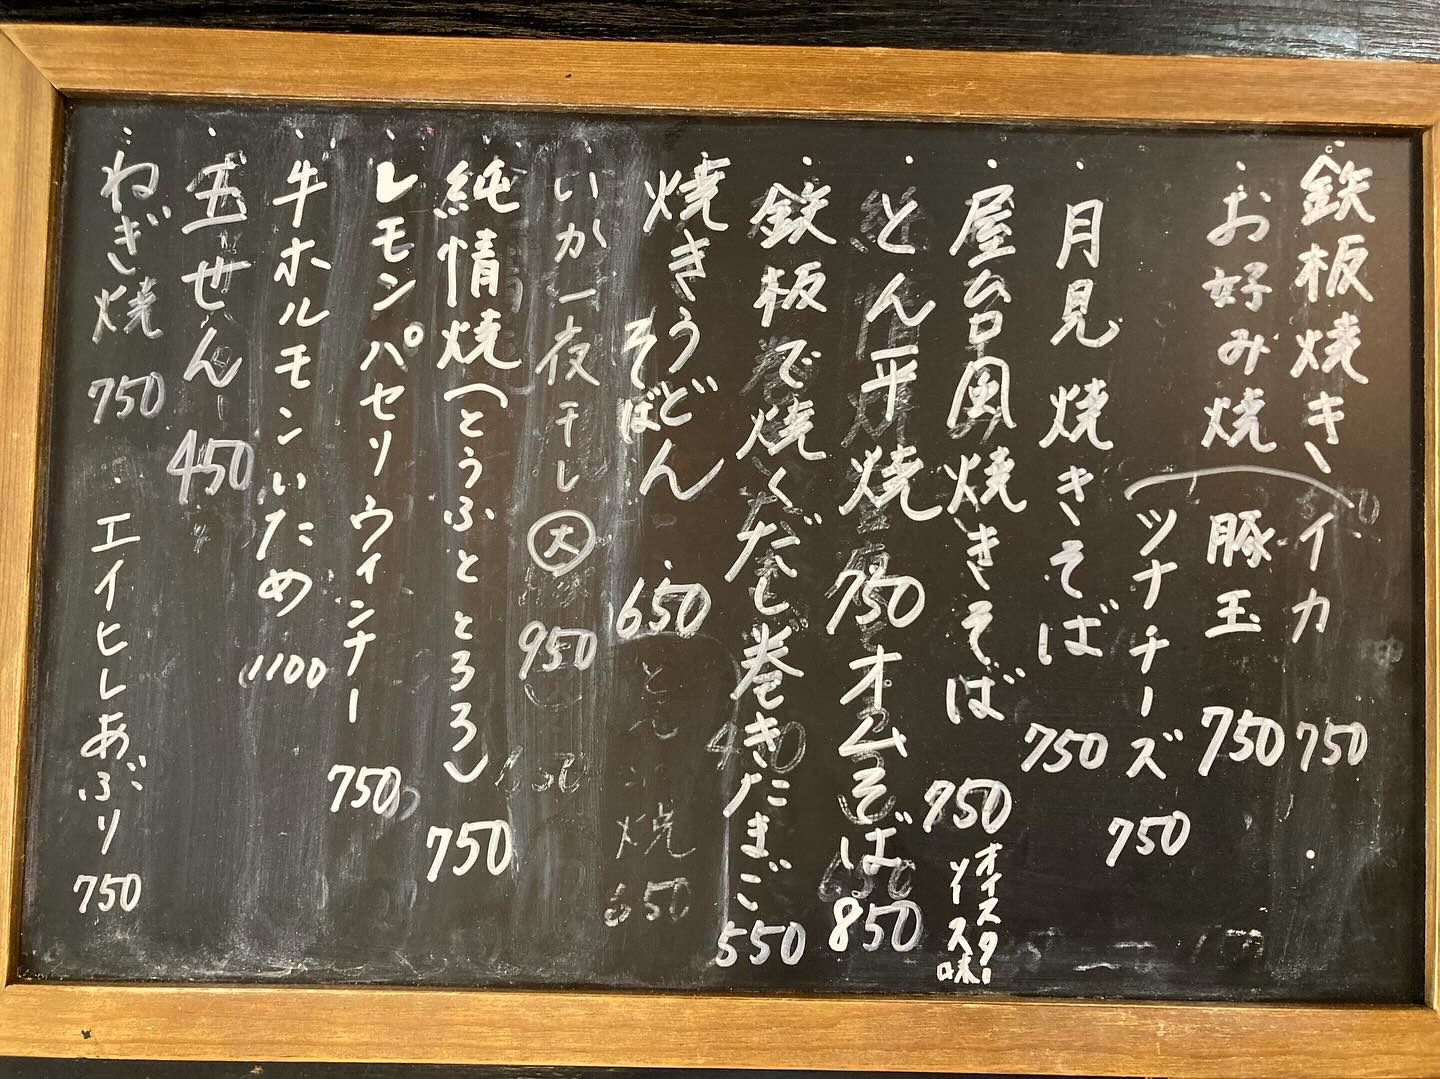 ・鉄板焼き
・お好み焼
イカ 750
豚玉 750
ツナチーズ 750
・月見焼きそば 750
・屋台風焼きそば 750
オイスターソース味
・とん平焼 750 オムそば 850
・鉄板で焼くだし巻きたまご 550
・焼きうどん 650
そば
・いか一夜干し 大 950
・純情焼(とうふととろろ) 750
・レモンパセリウィンナー 750
・牛ホルモンいため 1100
・玉せん 450
・ねぎ焼 750
・エイヒレあぶり 750